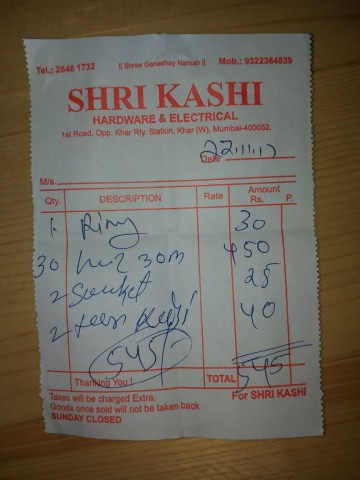 Tel.: 2648 1732 || Shree Ganeshay Namah || Mob.: 9322384839
SHRI KASHI
HARDWARE & ELECTRICAL
1st Road, Opp. Khar Rly. Station, Khar (W), Mumbai-400052.
Date 22.11.17
M/s.
Qty. DESCRIPTION Rate Amount
Rs. P.
1. Ring 30
30 30m 450
2 Socket 25
2 40
545
Thanking You! TOTAL 545
Taxes will be charged Extra. For SHRI KASHI
Goods once sold will not be taken back
SUNDAY CLOSED